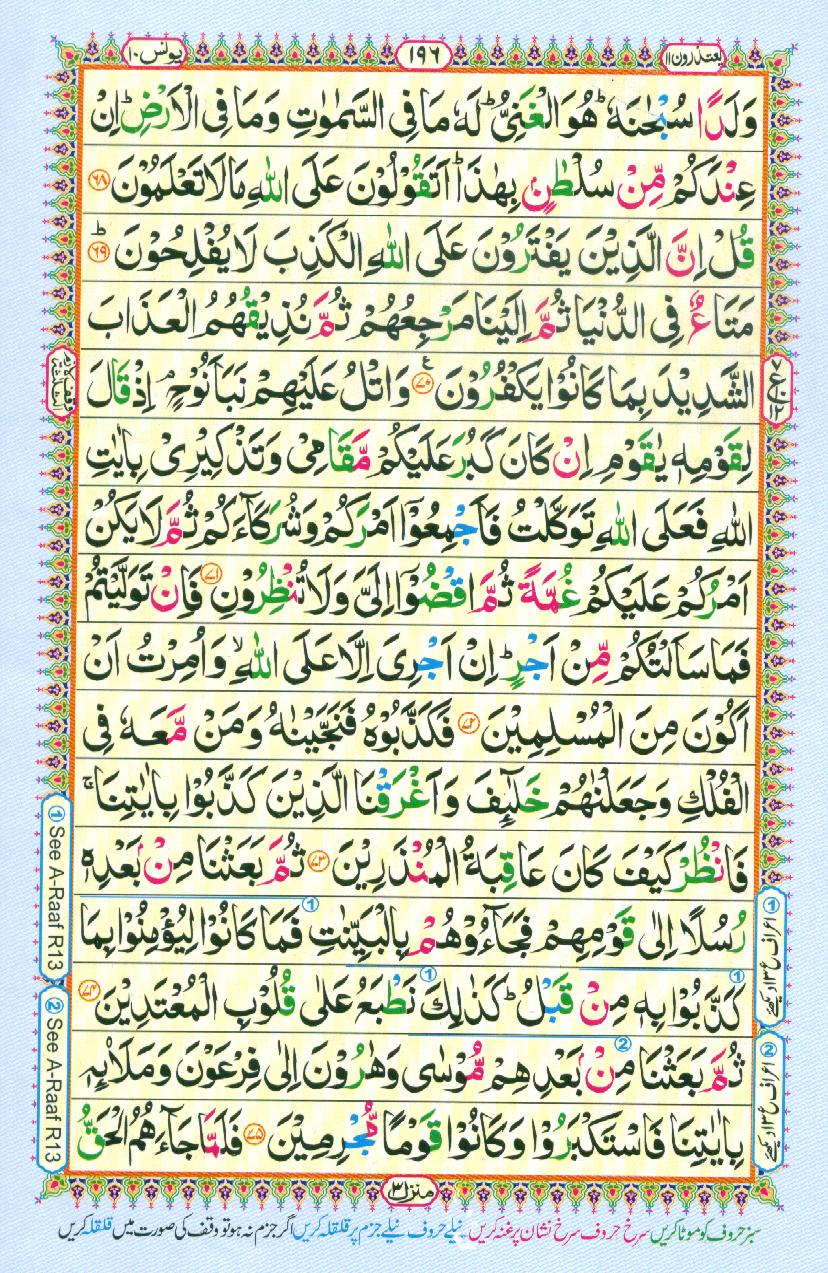 یعتذرون ۱۱
۱۹۶
یونس ۱۰
وَلَدًا سُبْحٰنَهٗ ؕ هُوَ الْغَنِیُّ ؕ لَهٗ مَا فِی السَّمٰوٰتِ وَمَا فِی الْاَرْضِ ؕ اِنْ
عِنْدَكُمْ مِّنْ سُلْطٰنٍۭ بِهٰذَا ؕ اَتَقُوْلُوْنَ عَلَی اللّٰهِ مَا لَا تَعْلَمُوْنَ ﴿۶۸﴾
قُلْ اِنَّ الَّذِیْنَ یَفْتَرُوْنَ عَلَی اللّٰهِ الْكَذِبَ لَا یُفْلِحُوْنَ ﴿۶۹﴾ؕ
مَتَاعٌ فِی الدُّنْیَا ثُمَّ اِلَیْنَا مَرْجِعُهُمْ ثُمَّ نُذِیْقُهُمُ الْعَذَابَ
الشَّدِیْدَ بِمَا كَانُوْا یَكْفُرُوْنَ ﴿۷۰﴾ وَاتْلُ عَلَیْهِمْ نَبَاَ نُوْحٍ ۘ اِذْ قَالَ
لِقَوْمِهٖ یٰقَوْمِ اِنْ كَانَ كَبُرَ عَلَیْكُمْ مَّقَامِیْ وَتَذْكِیْرِیْ بِاٰیٰتِ
اللّٰهِ فَعَلَی اللّٰهِ تَوَكَّلْتُ فَاَجْمِعُوْۤا اَمْرَكُمْ وَشُرَكَآءَكُمْ ثُمَّ لَا یَكُنْ
اَمْرُكُمْ عَلَیْكُمْ غُمَّةً ثُمَّ اقْضُوْۤا اِلَیَّ وَلَا تُنْظِرُوْنِ ﴿۷۱﴾ فَاِنْ تَوَلَّیْتُمْ
فَمَا سَاَلْتُكُمْ مِّنْ اَجْرٍ ؕ اِنْ اَجْرِیَ اِلَّا عَلَی اللّٰهِ ۙ وَاُمِرْتُ اَنْ
اَكُوْنَ مِنَ الْمُسْلِمِیْنَ ﴿۷۲﴾ فَكَذَّبُوْهُ فَنَجَّیْنٰهُ وَمَنْ مَّعَهٗ فِی
الْفُلْكِ وَجَعَلْنٰهُمْ خَلٰٓىِٕفَ وَاَغْرَقْنَا الَّذِیْنَ كَذَّبُوْا بِاٰیٰتِنَا ۚ
فَانْظُرْ كَیْفَ كَانَ عَاقِبَةُ الْمُنْذَرِیْنَ ﴿۷۳﴾ ثُمَّ بَعَثْنَا مِنْۢ بَعْدِهٖ
رُسُلًا اِلٰی قَوْمِهِمْ فَجَآءُوْهُمْ بِالْبَیِّنٰتِ فَمَا كَانُوْا لِیُؤْمِنُوْا بِمَا
كَذَّبُوْا بِهٖ مِنْ قَبْلُ ؕ كَذٰلِكَ نَطْبَعُ عَلٰی قُلُوْبِ الْمُعْتَدِیْنَ ﴿۷۴﴾
ثُمَّ بَعَثْنَا مِنْۢ بَعْدِهِمْ مُّوْسٰی وَهٰرُوْنَ اِلٰی فِرْعَوْنَ وَمَلَا۟ىِٕهٖ
بِاٰیٰتِنَا فَاسْتَكْبَرُوْا وَكَانُوْا قَوْمًا مُّجْرِمِیْنَ ﴿۷۵﴾ فَلَمَّا جَآءَهُمُ الْحَقُّ
① See A-Raaf R13
② See A-Raaf R13
منزل ۳
سبز حروف کو موٹا کریں سرخ حروف سرخ نشان پر غنہ کریں نیلے حروف نیلے جزم پر قلقلہ کریں اگر جزم نہ ہو تو وقف کی صورت میں قلقلہ کریں